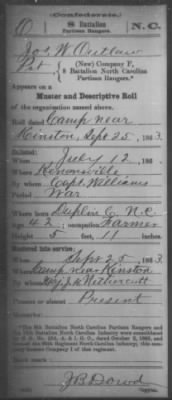 (Confederate.)
O 8 Battalion N.C.
Partisan Rangers.
Jos W Outlaw
Pvt, (New) Company F,
8 Battalion North Carolina
Partisan Rangers.*
Appears on a
Muster and Descriptive Roll
of the organization named above.
Roll dated Camp near
Kinston, Sept 25, 1863.
Enlisted:
When July 12, 186
Where Kenansville
By whom Capt Williams
Period War
Where born Duplin Co N.C.
Age 42; occupation Farmer
Height 5 feet, 11 inches.
Mustered into service:
When Sept 25, 1863.
Where Camp near Kinston
By whom J. H. Nethercutt
Present or absent Present
Remarks:
*The 8th Battalion North Carolina Partisan Rangers and
J B Dowd
Copyist.